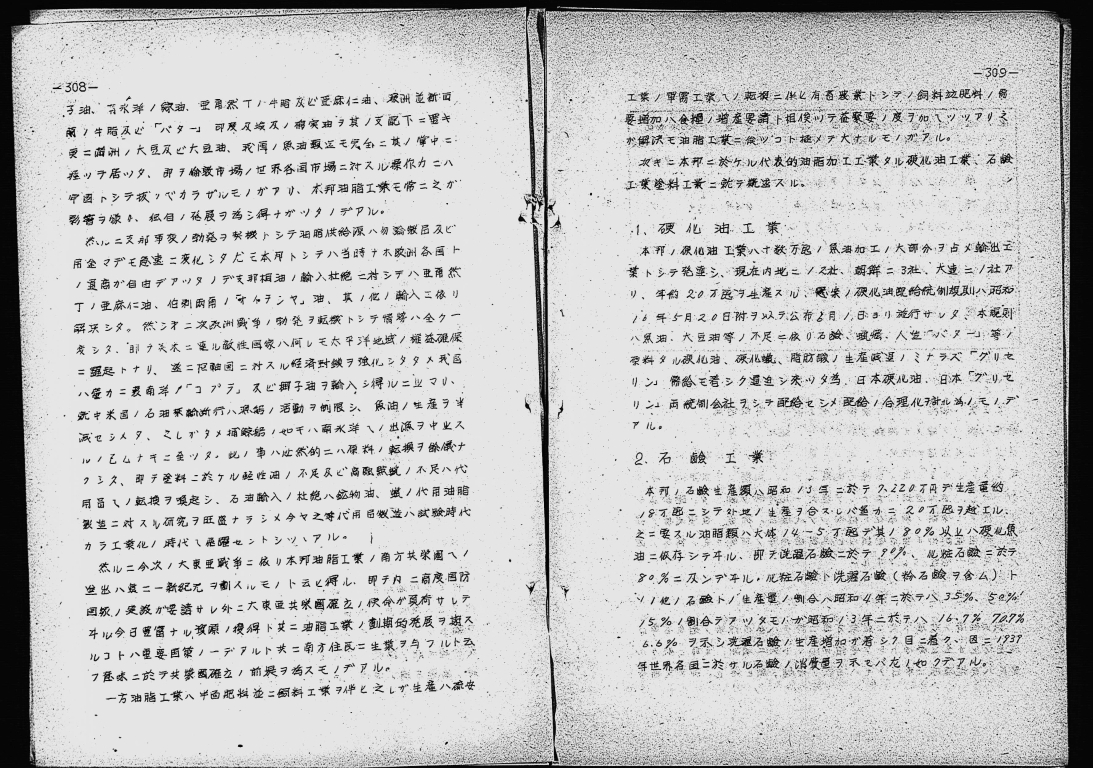 —308—
子油、 洋ノ鯨油、亜爾然丁ノ牛脂及ビ亜麻仁油、濠洲並新西
蘭ノ牛脂及ビ「バター」印度及埃及ノ棉実油ヲ其ノ支配下ニ置キ
更ニ満洲ノ大豆及ビ大豆油、我国ノ魚油類迄モ完全ニ其ノ掌中ニ
握ツテ居ツタ、即ヲ倫敦市場ノ世界各国市場ニ対スル操作力ニハ
牢固トシテ抜クベカラザルモノガアリ、本邦油脂工業モ常ニ之ガ
影響ヲ蒙リ、独自ノ発展ヲ為シ得ナカツタノデアル。
然ルニ支那事変ノ勃発ヲ契機トシテ油脂供給源ハ勿論数量及ビ
用途マデモ急速ニ変化シタ モ本邦トシテハ当時ナホ欧洲各国ト
ノ貿易ガ自由デアツタノデ支那桐油ノ輸入杜絶ニ対シテハ亜爾然
丁ノ亜麻仁油、伯剌西爾ノ「オイチシヤ」油、其ノ他ノ輸入ニ依リ
解決シタ。然シ第二次欧洲戦争ノ勃発ヲ転機トシテ情勢ハ全ク一
変シタ、即ヲ英米ニ重ル敵性国家ハ何レモ太平洋地域ノ権益確保
ニ躍起トナリ、遂ニ枢軸国ニ対スル経済封鎖ヲ強化シタタメ我国
ハ僅カニ表南洋ノ「コプラ」及ビ椰子油ヲ輸入シ得ルニ止マリ、
就中米国ノ石油禁輸断行ハ漁船ノ活動ヲ制限シ、魚油ノ生産ヲ半
減セシメタ、之レガタメ捕鯨船ノ如キハ南氷洋ヘノ出漁ヲ中止ス
ルノ已ムナキニ至ツタ。此ノ事ハ必然的ニハ原料ノ転換ヲ余儀ナ
クシタ、即チ塗料ニ於ケル乾性油ノ不足及ビ高融 ノ不足ハ代
用品ヘノ転換ヲ喚起シ、石油輸入ノ杜絶ハ鉱物油、蝋ノ代用油脂
製造ニ対スル研究ヲ旺盛ナラシメ今ヤ之等代用品製造ハ試験時代
カラ工業化ノ時代ヘ飛躍セントシツヽアル。
然ルニ今次ノ大東亜戦争ニ依リ本邦油脂工業ノ南方共栄圏ヘノ
進出ハ茲ニ一新紀元ヲ劃スルモノト云ヒ得ル、即チ内ニ高度国防
国家ノ建設ガ要請サレ外ニ大東亜共栄圏確立ノ使命ガ負荷サレテ
ヰル今日豊富ナル資源ノ獲得ト共ニ油脂工業ノ劃期的発展ヲ期ス
ルコトハ重要国策ノ一デアルト共ニ南方住民ニ生業ヲ与フルト云
フ意味ニ於テ共栄圏確立ノ前提ヲ為スモノデアル。
一方油脂工業ハ半面肥料並ニ飼料工業ヲ伴ヒ之レガ生産ハ

—309—
工業ノ軍需工業ヘノ転換ニ伴ヒ有畜農業トシテノ飼料並肥料ノ需
要増加ハ食糧ノ増産要請ト相俟ツテ益緊要ノ度ヲ加ヘツツアリ之
ガ解決モ油脂工業ニ依ツコト極メテ大ナルモノガアル。
次ギニ本邦ニ於ケル代表的油脂加工工業タル硬化油工業、石鹸
工業塗料工業ニ就テ概述スル。
1. 硬化油工業
本邦ノ硬化油工業ハ十数万瓲ノ魚油加工ノ大部分ヲ占メ輸出工
業トシテ発達シ、現在内地ニ12社、朝鮮ニ3社、大連ニ1社ア
リ、年約20万瓲ヲ生産スル、 ノ硬化油配給統制規則ハ昭和
16年5月20日附ヲ以テ公布6月1日ヨリ施行サレタ、本規則
ハ魚油、大豆油等ノ不足ニ依リ石鹸、蝋燭、人造「バター」等ノ
原料タル硬化油、硬化蝋、脂肪酸ノ生産減退ノミナラズ「グリセ
リン」需給モ著シク逼迫シ来ツタ為、日本硬化油、日本「グリセ
リン」両統制会社ヲシテ配給セシメ配給ノ合理化ヲ計ル為ノモノデ
アル。
2. 石鹸工業
本邦ノ石鹸生産額ハ昭和13年ニ於テ 220万円デ生産量約
18万瓲ニシテ外地ノ生産ヲ合スレバ 20万瓲ヲ越エル、
之ニ要スル油脂類ハ大体14－5万瓲デ其ノ80％以上ハ硬化魚
油ニ依存シテヰル、即チ洗濯石鹸ニ於テ90％、化粧石鹸ニ於テ
80％ニ及ンデヰル。化粧石鹸ト洗濯石鹸(粉石鹸ヲ含ム)ト
ソノ他ノ石鹸トノ生産量ノ割合ハ昭和4年ニ於テハ35％、50％
15％ノ割合デアツタモノガ昭和13年ニ於テハ16.7％ 70.7％
6.6％ヲ示シ洗濯石鹸ノ生産増加ガ著シク目ニ着ク、因ニ1937
年世界各国ニ於ケル石鹸ノ消費量ヲ示セバ左ノ如クデアル。